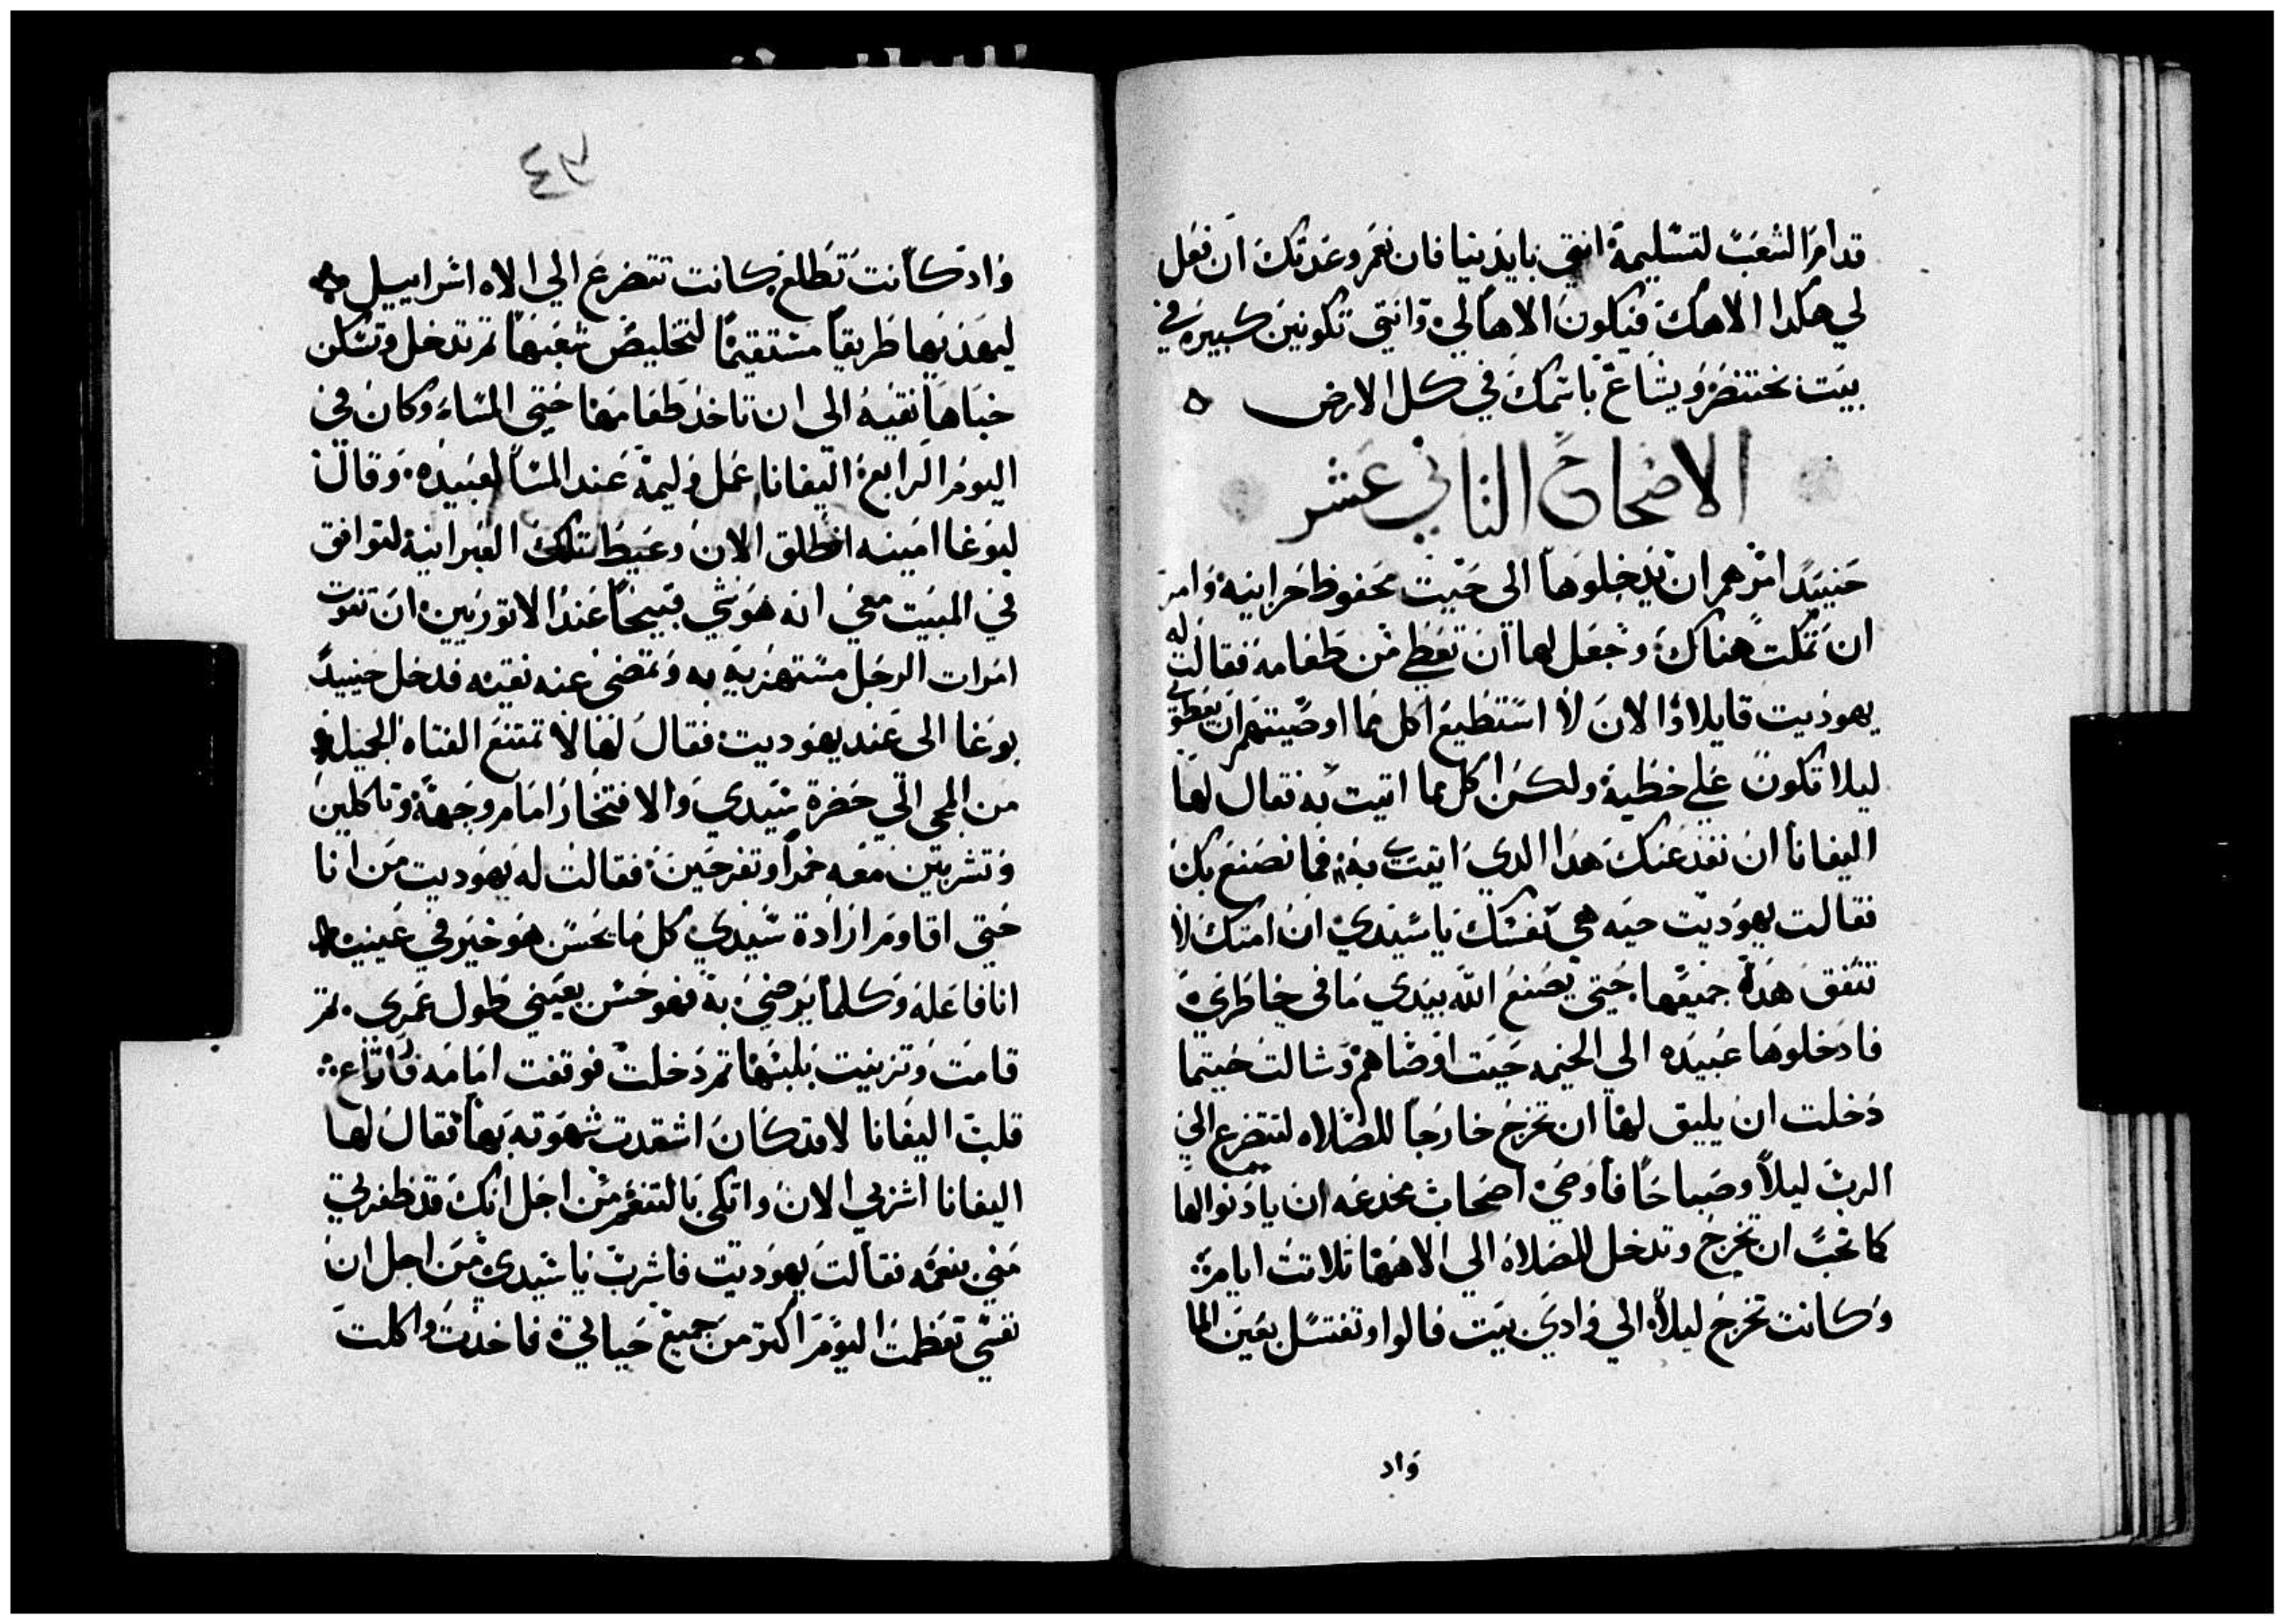 قدام الشعب لتسليمة انتي بايدنيا فان نعمر وعدتك ان فعل
لي هكدا الاهك فيكون الاهاً لي وانتي تكونين كبيرة في
بيت نختنصر ويشاع باسمك في كل الارض
الاصحاح الثاني عشر
حنييدٍ امرهم ان يدخلوها الى حيت محفوظ خزاينه وامر
ان تمكت هناك وجعل لها ان تعطي من طعامه فقالت له
يهوديت قايلا والان لا استطيع اكل مما اوصيتهم ان يعطوني
ليلا تكون علي خطية ولكن اكل مما اتيت به فقال لها
اليفانا ان نفد عنك هدا الدي اتيتي به فما نصنع بك
فقالت يهوديت حيه هي نفسك ياسيدي ان امتك لا
تنفق هده جميعها حتى يصنع الله بيدي ما في خاطري
فادخلوها عبيده الي الخيمه حيت اوصاهم وسالت حيتما
دخلت ان يليق لها ان تخرج خارجاً للصلاه لتتضرع الي
الرب ليلاً وصباحاً فاوصي اصحاب مخدعه ان يادنوا لها
كما تحب ان تخرج وتدخل للصلاة الي الاهها تلاتت ايام
وكانت تخرج ليلاً الي وادي بيت فالوا وتغتسل بعين الما
واد
٤٧
واد كانت تطلع كانت تتضرع الي الاه اسراييل
ليهديها طريقاً مستقيماً لتخليص شعبها تم تدخل وتسكن
خباها نقيه الى ان تاخد طعامها حتي المساء وكان في
اليوم الرابع اليفانا عمل وليمة عند المسا لعبيده وقال
لبوغا امينه انطلق الان وعيط تلك العبرانية لتوافق
في المبيت معي انه هو شي قبيحاً عند الاتوريين ان تفوت
امرات الرجل مستهزية به وتمضي عنه نقيه فدخل حنييدٍ
بوغا الى عند يهوديت فقال لها لا تمتنع الفتاه الجميله
من المجي الي حضرة سيدي والافتخار امام وجهة وتاكلين
وتشربين معه خمراً وتفرحين فقالت له يهوديت من انا
حتي اقاوم ارادة سيدي كل ما يحسن هو خير في عينيه
انا فاعله وكلما يرضي به فهو حسن بعيني طول عمري تم
قامت وتزينت بلبسها تم دخلت فوقفت امامه فارتاع
قلب اليفانا لانه كان اشتدت شهوته بها فقال لها
اليفانا اشربي الان واتكي بالتنعم من اجل انك قد ظفرتي
مني نعمه فقالت يهوديت فاشرب ياسيدي من اجل ان
نفسي تعظمت اليوم اكتر من جميع حياتي فاخدت واكلت